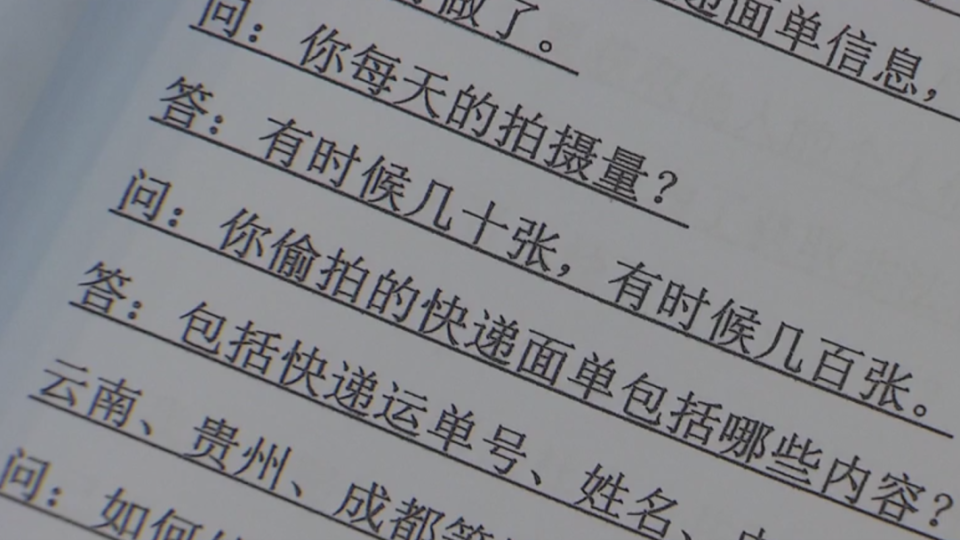 递面单信息，
做了。
问：你每天的拍摄量？
答：有时候几十张，有时候几百张。
问：你偷拍的快递面单包括哪些内容？
答：包括快递运单号、姓名、
云南、贵州、成都等
问：如何